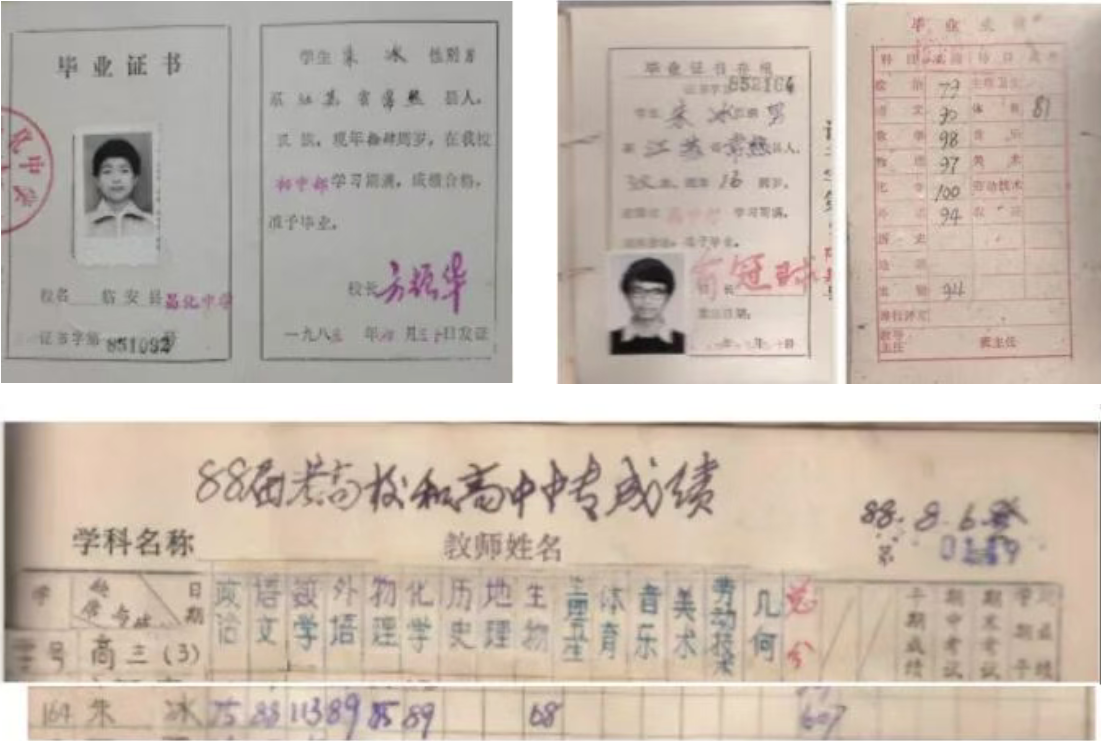 毕业证书
校名 临安县昌化中学
证书字第851092号
学生 朱 冰 性别男
系江苏省常熟县人,
汉族,现年拾肆周岁,在我校
初中部学习期满,成绩合格,
准予毕业。
校长 方振华
一九八五年 月三十日发证
毕业证书存根
证书字第852164
学生 朱 冰 性别 男
系 江苏省常熟县人,
汉族,现年16周岁,
学习期满,
准予毕业。
校长 俞冠球
毕业成绩
科目 成绩 科目 成绩
政治 79 生理卫生
语文 90 体育 81
数学 98 音乐
物理 97 美术
化学 100 劳动技术
外语 94
历史
地理
生物 94
教导主任 班主任
88届考高校和高中中专成绩
88.8.6
学科名称 教师姓名
学 日期 政治 语文 数学 外语 物理 化学 历史 地理 生物 生理卫生 体育 音乐 美术 劳动技术 几何 总分 平期成绩 期中考试 期末考试
号 高三(3)
164 朱 冰 75 88 113 89 85 89 68 607